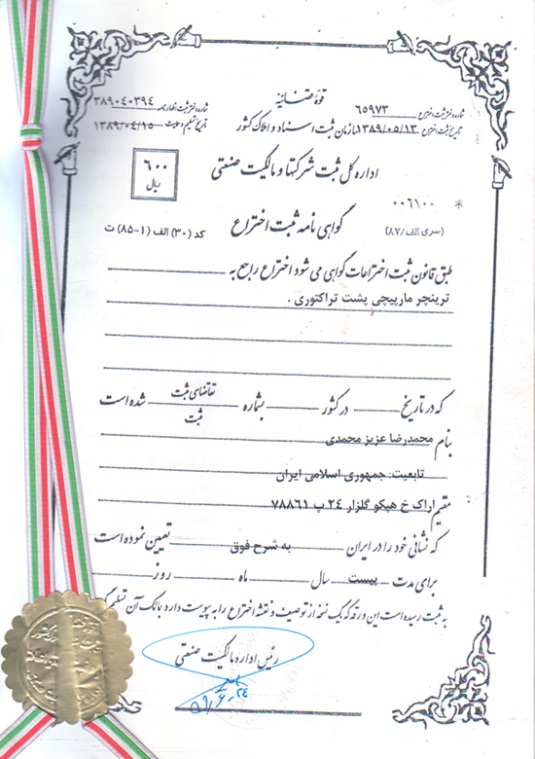 قوهٔ قضائیه
شماره دفتر ثبت اختراع ۶۵۹۷۳
شماره دفتر ثبت اظهارنامه ۳۸۹۰۴۰۳۹۴
تاریخ ثبت اختراع ۱۳۸۹/۰۵/۱۳
سازمان ثبت اسناد و املاک کشور
تاریخ تسلیم ۱۳۸۹/۰۴/۱۵
اداره کل ثبت شرکتها و مالکیت صنعتی
۶۰۰
ریال
* ۰۰۶۱۰۰
(سری الف/۸۷)
گواهی نامه ثبت اختراع
کد (۳۰) الف (۱-۸۵) ت
طبق قانون ثبت اختراعات گواهی می شود اختراع راجع به
ترینچر مارپیچی پشت تراکتوری .
که در تاریخ در کشور بشماره تقاضای ثبت شده است
ثبت
بنام محمدرضا عزیز محمدی
تابعیت: جمهوری اسلامی ایران
مقیم اراک خ هپکو گلزار ۲۴ پ ۷۸۸۶۱
که نشانی خود را در ایران به شرح فوق تعیین نموده است
برای مدت بیست سال ماه روز
به ثبت رسیده است این ورقه که یک نسخه از توصیف و نقشه اختراع را به پیوست دارد بمالک آن تسلیم
رئیس اداره مالکیت صنعتی